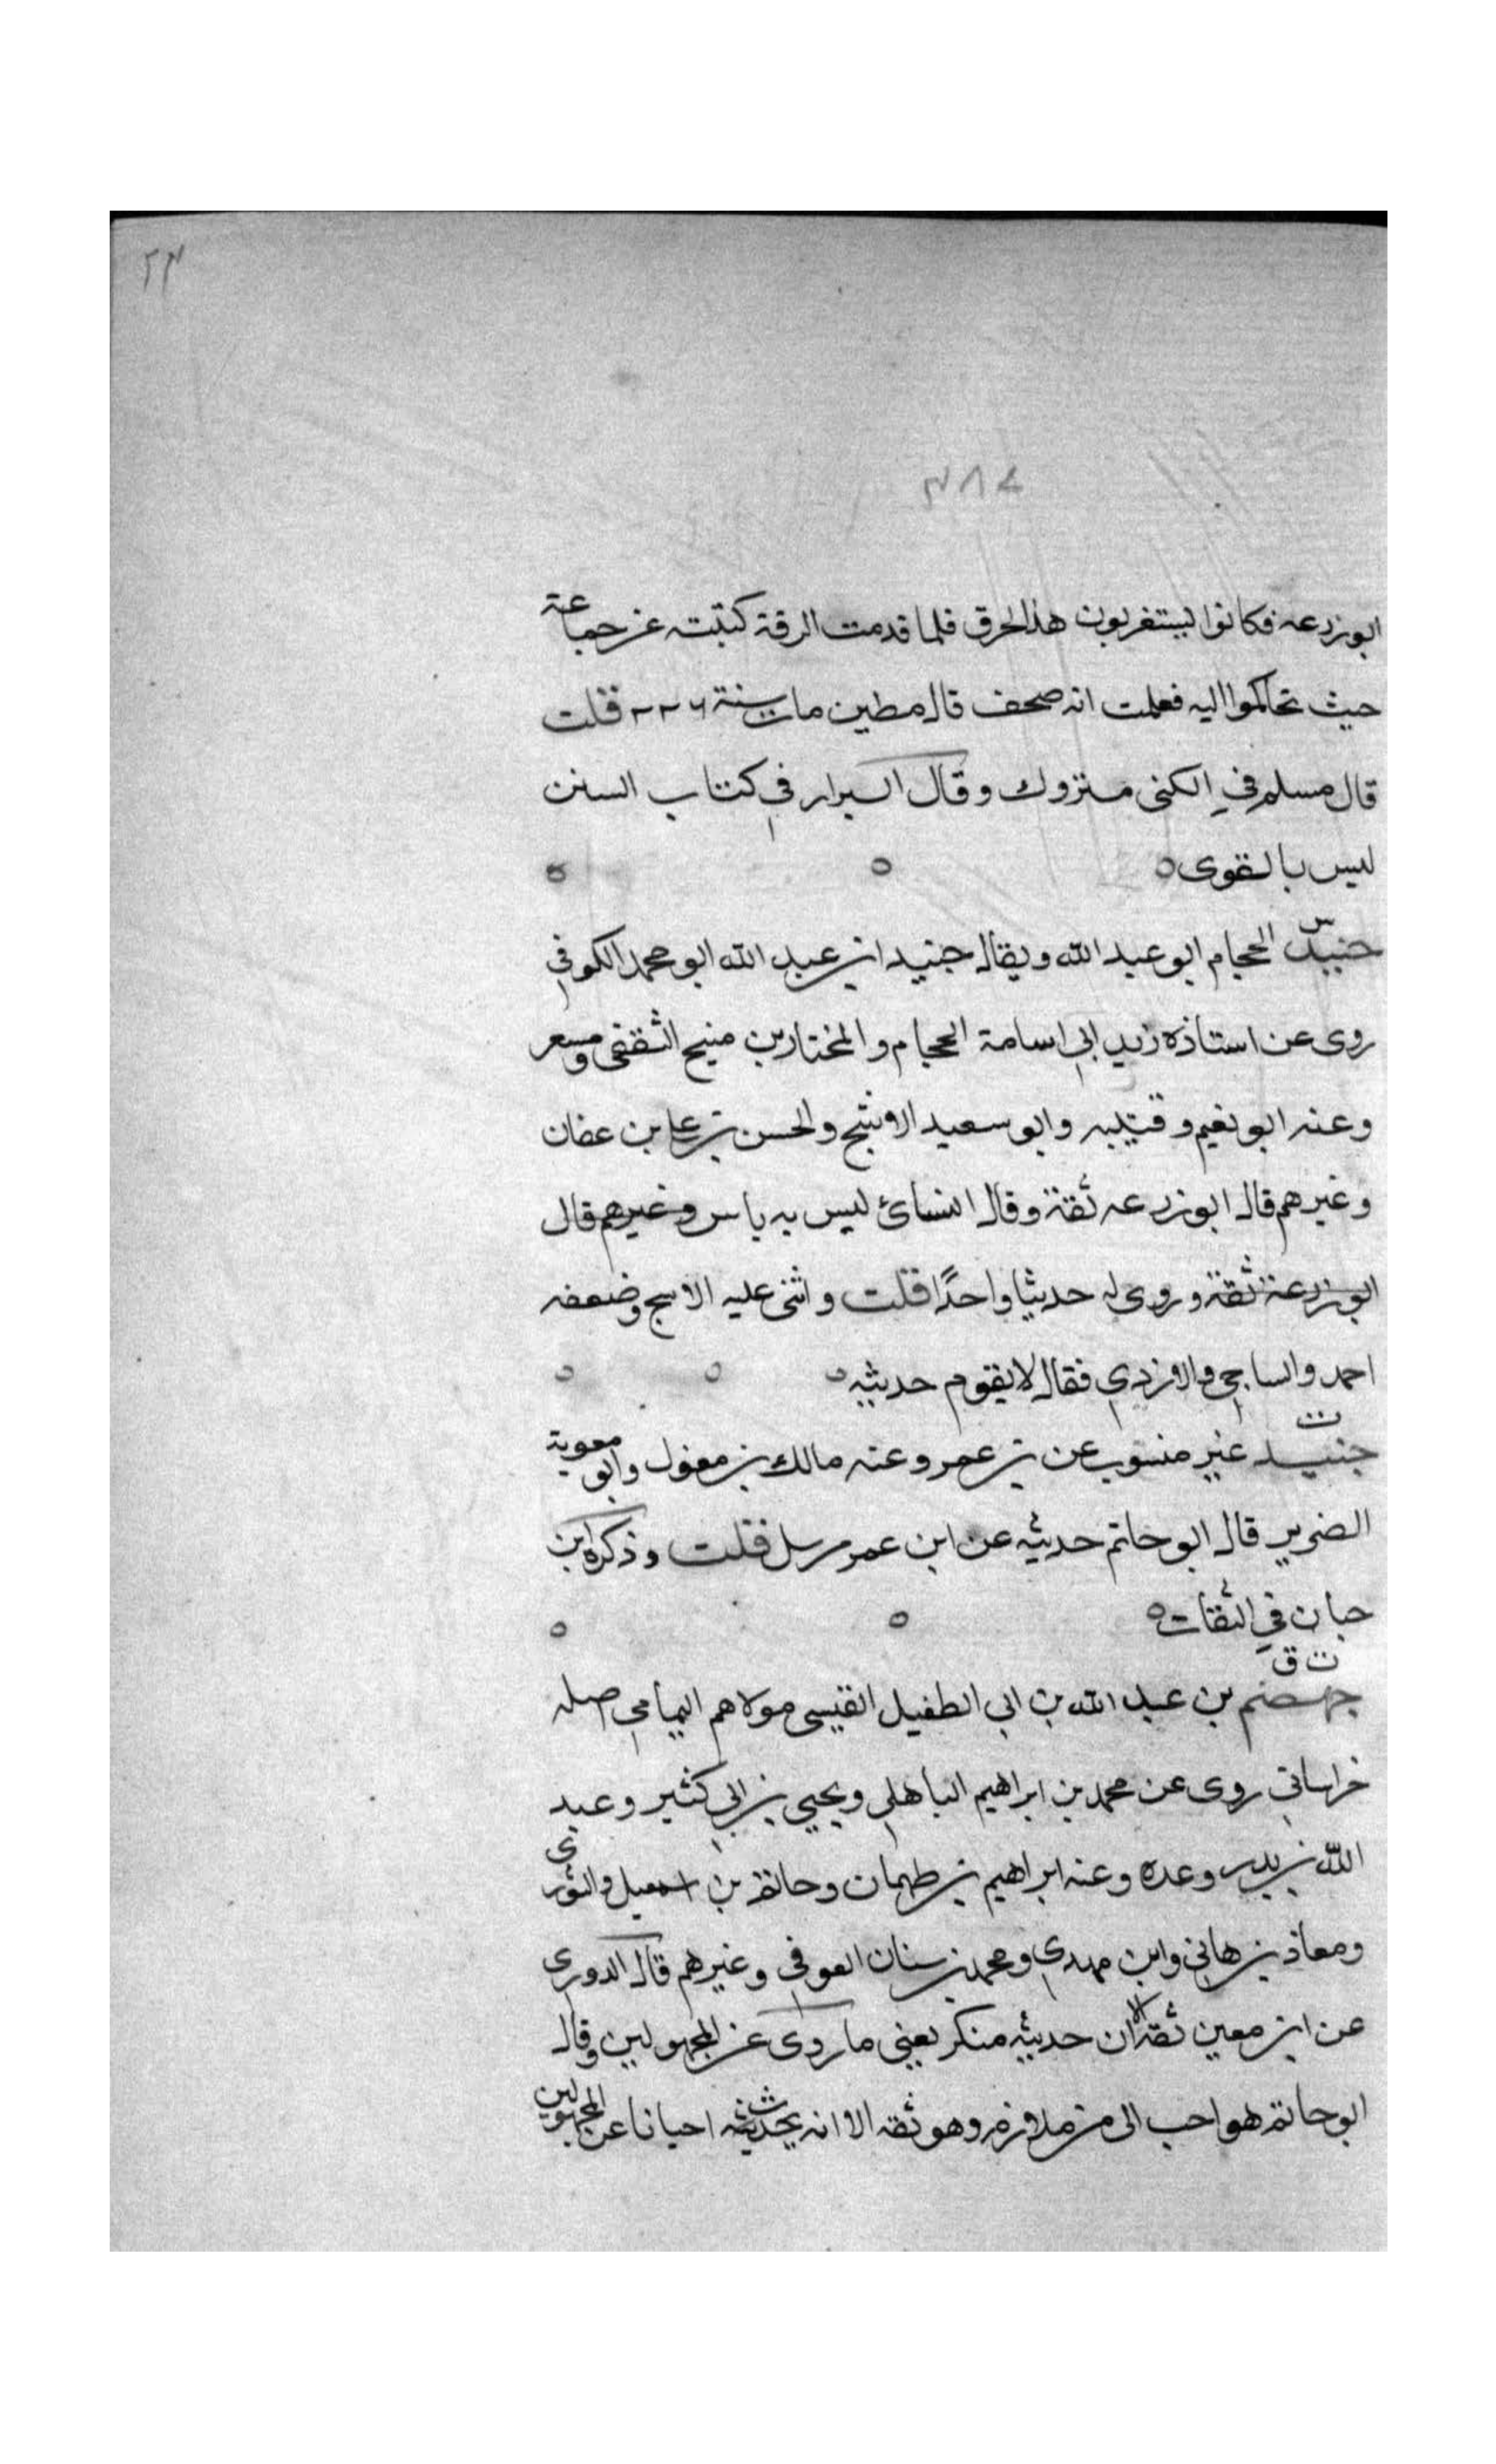 ٢٣
٣٨٤
ابوزرعه فكانوا ليستغربون هذا الحرق فلما قدمت الرقة كتبت عن جماعة
حيث تحاكموا اليه فعلمت انه صحف قال مطين مات سنة ٢٢٦ قلت
قال مسلم في الكنى متروك وقال البزار في كتاب السنن
ليس بالقوى ٥ ٥ ٥
س
جنيد الحجام ابو عبد الله ويقال جنيد ابن عبد الله ابو محمد الكوفي
روى عن استاذه زيد ابي اسامة الحجام والمختار بن منيح الثقفي ومسعر
وعنه ابو نعيم وقتيبه وابو سعيد الاشج والحسن بن علي بن عفان
وغيرهم قال ابو زرعه ثقة وقال النسائ ليس به باس وغيرهم قال
ابو زرعة ثقة وروى له حديثا واحدًا قلت واثنى عليه الاشج وضعفه
احمد والساجي والازدي فقال لا يقوم حديثه ٥ ٥ ٥
ت
جنيد غير منسوب عن بن عمر وعنه مالك بن مغول وابو معوية
الضرير قال ابو حاتم حديثه عن ابن عمر مرسل قلت وذكره ابن
حبان في الثقات ٥ ٥ ٥
ت ق
جهضم بن عبد الله بن ابي الطفيل القيسي مولاهم اليمامي اصله
خراساني روى عن محمد بن ابراهيم الباهلي ويحيي بن ابي كثير وعبد
الله بن بدر وعدة وعنه ابراهيم بن طهمان وحاتم بن اسمعيل والثورى
ومعاذ بن هاني وابن مهدي ومحمد بن سنان العوفي وغيرهم قال الدوري
عن ابن معين ثقة الا ان حديثه منكر يعني ما روى عن المجهولين وقال
ابو حاتم هو احب الى من ملازم وهو ثقه الا انه يحدث احيانا عن المجهولين